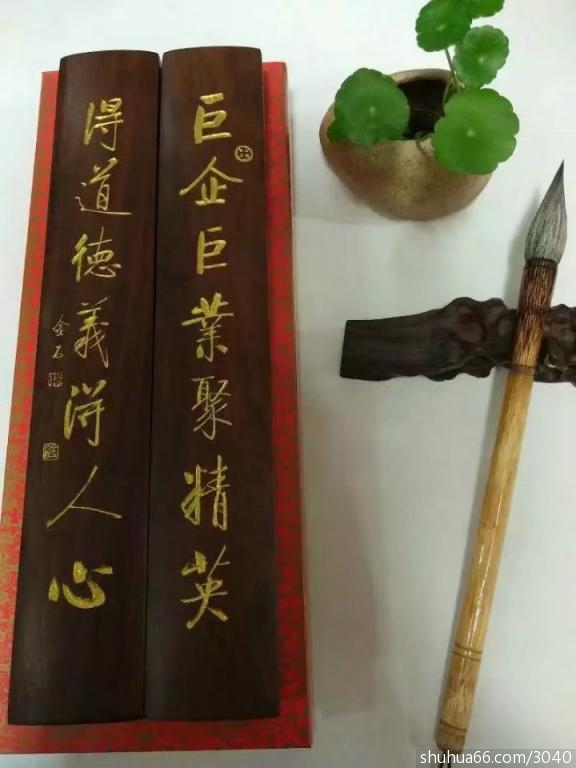 巨企巨業聚精英
得道德義得人心
金石
shuhua66.com/3040